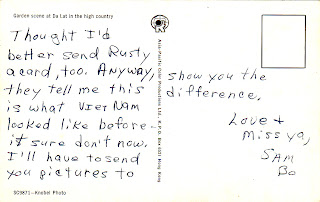 Garden scene at Da Lat in the high country
Thought I'd
better send Rusty
a card, too. Anyway,
they tell me this
is what Viet Nam
looked like before -
it sure don't now.
I'll have to send
you pictures to
DC9871 - Knobel Photo
Asia-Pacific Color Productions Ltd., K.P.O. Box 6021 Hong Kong
show you the
difference.
Love +
Miss ya,
SAM
Bo